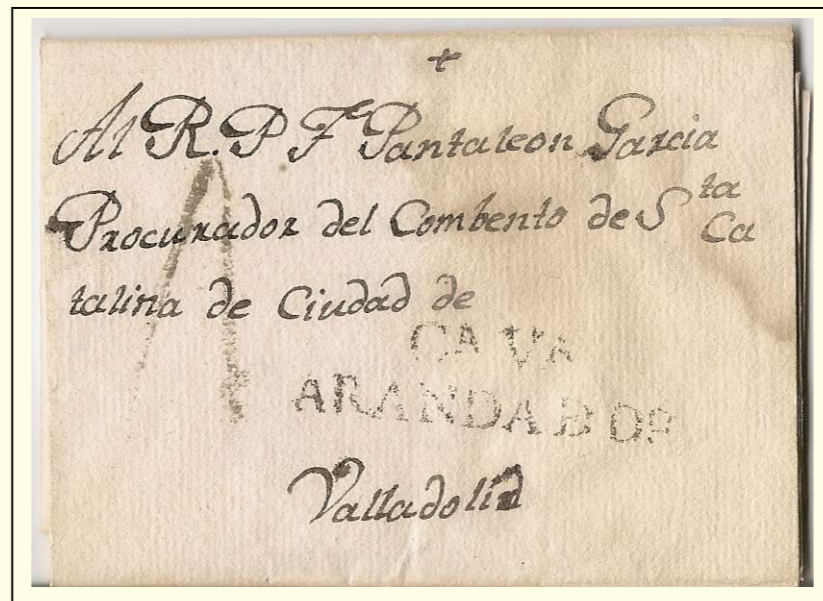 +
Al R. P. Fr Pantaleon Garcia
Procurador del Combento de Sta Ca
talina de Ciudad de
CA VA
ARANDA D Dº
Valladolid